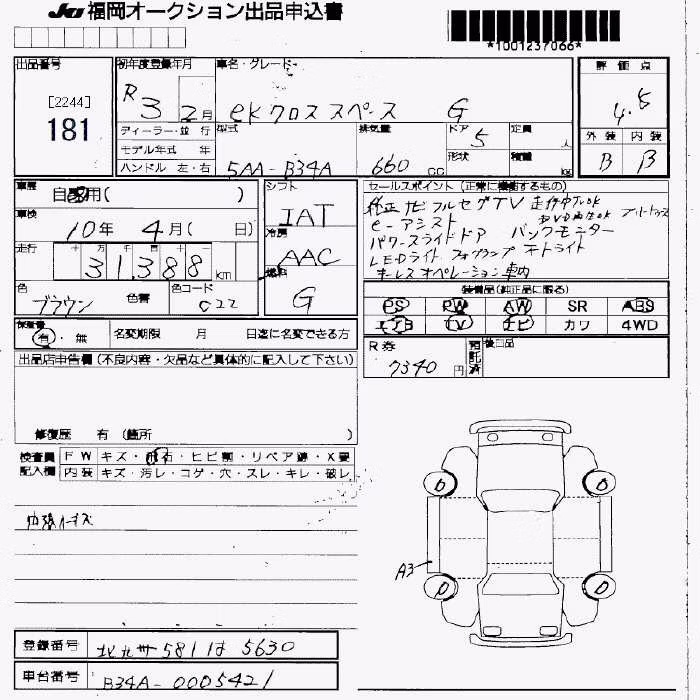 JU 福岡オークション出品申込書
*1001237066*
出品番号 初年度登録年月 車名・グレード 評価点
[2244]
181
R 3 2月 eKクロススペース G 4.5
ディーラー・並行 型式 排気量 ドア 5 定員 人 外装 内装
モデル年式 年 形状 積載 kg
ハンドル 左・右 5AA-B34A 660 CC B B
車歴 自家用( ) シフト セールスポイント (正常に機能するもの)
車検 IAT 純正ナビフルセグTV 走行中TVOK
10年 4月( 日) 冷房 e-アシスト DVD再生OK
走行 十万千百十一 AAC パワースライドドア バックモニター
31,388 km 燃料 LEDライト フォグランプ オートライト
色 色替 色コード G キーレスオペレーション 車内
ブラウン C22 装備品(純正品に限る)
保証書 PS PW AW SR ABS
有・無 名変期限 月 日迄に名変できる方 エアB TV ナビ カワ 4WD
出品店申告欄 (不良内容・欠品など具体的に記入して下さい) R券 7340円 預託済 後日品
修復歴 有 (箇所 )
検査員 FW キズ・飛石・ヒビ割・リペア跡・X要
記入欄 内装 キズ・汚レ・コゲ・穴・スレ・キレ・破レ
A3
登録番号 北九州 581 は 5630
車台番号 B34A-0005421